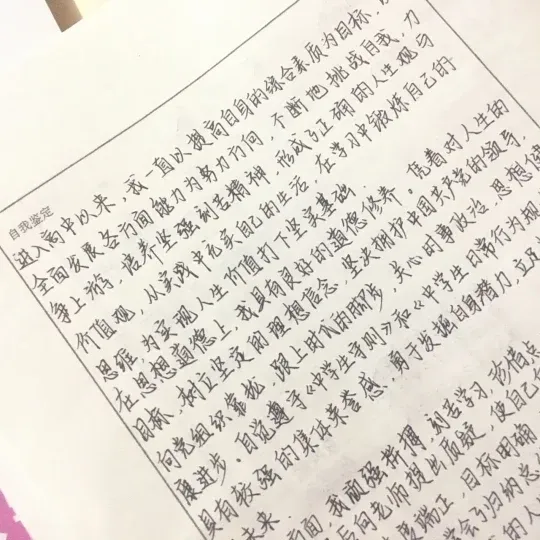 自我鉴定
进入高中以来，我一直以提高自身的综合素质为目标，以
全面发展各方面能力为努力方向，不断地挑战自我，力
争上游，培养坚强刻苦精神，形成了正确的人生观与
价值观，从实践中充实自己的生活，在学习中锻炼自己的
思维，为实现人生价值打下坚实基础。
在思想道德上，我具有良好的道德修养。凭着对人生的
目标，树立坚定的理想信念，坚决拥护中国共产党的领导，
向党组织靠拢，跟上时代的脚步，关心时事政治，思想健
康进步。自觉遵守《中学生守则》和《中学生日常行为规
具有较强的集体荣誉感，勇于发掘自身潜力，立足
未来。
方面，我顽强拼搏，刻苦学习，
后向老师提出质疑，使自己
度端正，目标明确，
学会了归纳总
的人